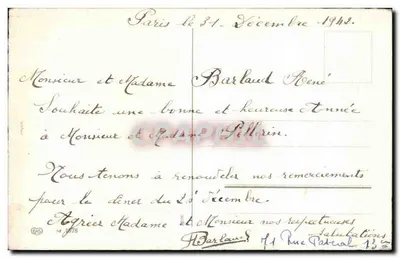 Paris le 31 Décembre 1942.
Monsieur et Madame Barlaud René
Souhaite une bonne et heureuse Année
à Monsieur et Madame Pellerin.
Nous tenons à renouveler nos remerciements
pour le diner du 25 Décembre.
Agréer Madame et Monsieur nos respectueuses
salutations
Barlaud 71 Rue Pascal 13